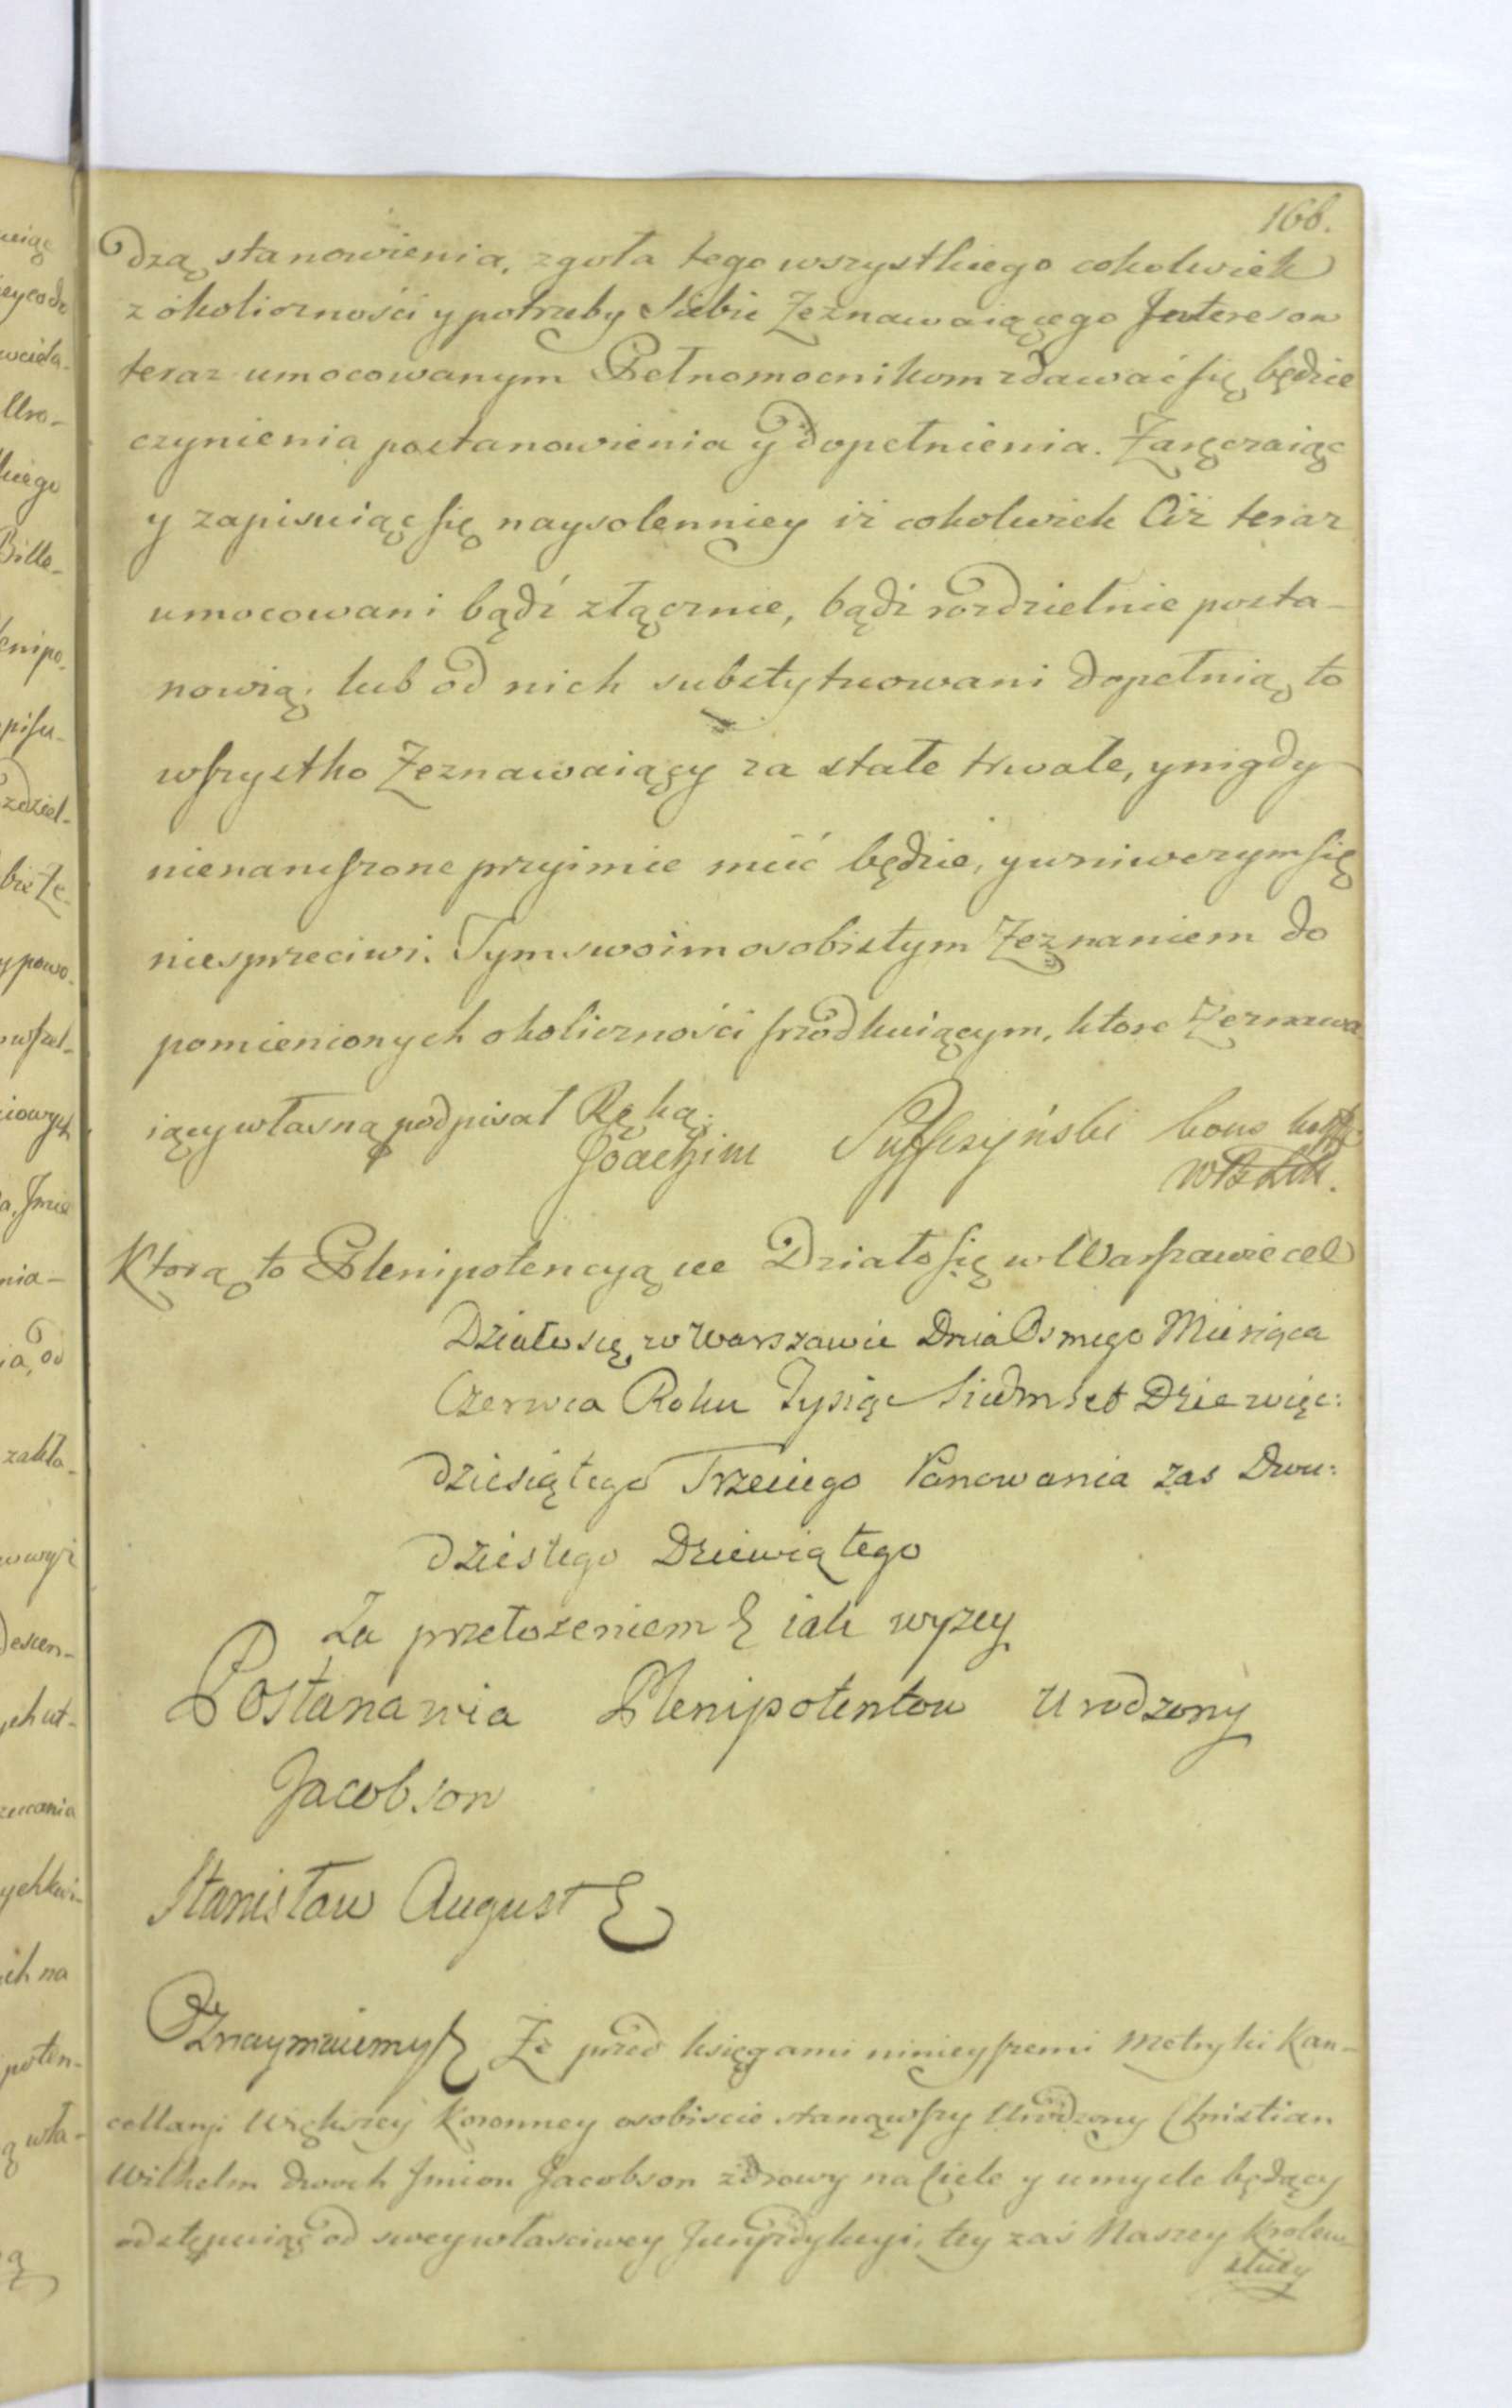 166.
dzą stanowienia, zgoła tego wszystkiego cokolwiek
z okoliczności y potrzeby Siebie Zeznawaiącego Interesow
teraz umocowanym Pełnomocnikom zdawać się będzie
czynienia postanowienia y dopełnienia. Zaręczaiąc
y zapisuiąc się naysolenniey iż cokolwiek Ciż teraz
umocowani bądź złącznie, bądź rozdzielnie posta-
nowią, lub od nich substytuowani dopełnią, to
wszystko Zeznawaiący za stałe trwałe, y nigdy
nienaruszone przyimie mieć będzie, y w niwczym się
niesprzeciwi. Tym swoim osobistym Zeznaniem do
pomienionych okoliczności srzodkuiącym, ktore Zeznawa
iący własną podpisał Ręką.
Joachim Suffczyński
Ktorą to Plenipotencyą ece Działo się w Warszawie cel
Działo się w Warszawie Dnia Osmego Miesiąca
Czerwca Roku Tysiąc Siedmset Dziewięć:
dziesiątego Trzeciego Panowania zas Dwu:
dziestego Dziewiątego
Za przełożeniem & iak wyzey
Postanawia Plenipotentow Urodzony
Jacobson
Stanisław August &
Oznaymuiemy & Ze przed księgami ninieyszemi Metryki Kan-
cellaryi Większey Koronney osobiscie stanąwszy Urodzony Christian
Wilhelm dwoch Imion Jacobson zdrowy na Ciele y umysle będący
odstępuiąc od swey własciwey Juryzdykcyi, tey zaś Naszey Krolew-
skiey
uiąc
eyco do
Uro-
kiego
Bille-
enipo-
pisu-
zdziel-
bie Ze-
y powo-
a, Imie
nia-
ia, od
zakła-
Descen-
ych ut-
ich na
poten-
ą wła-
ą